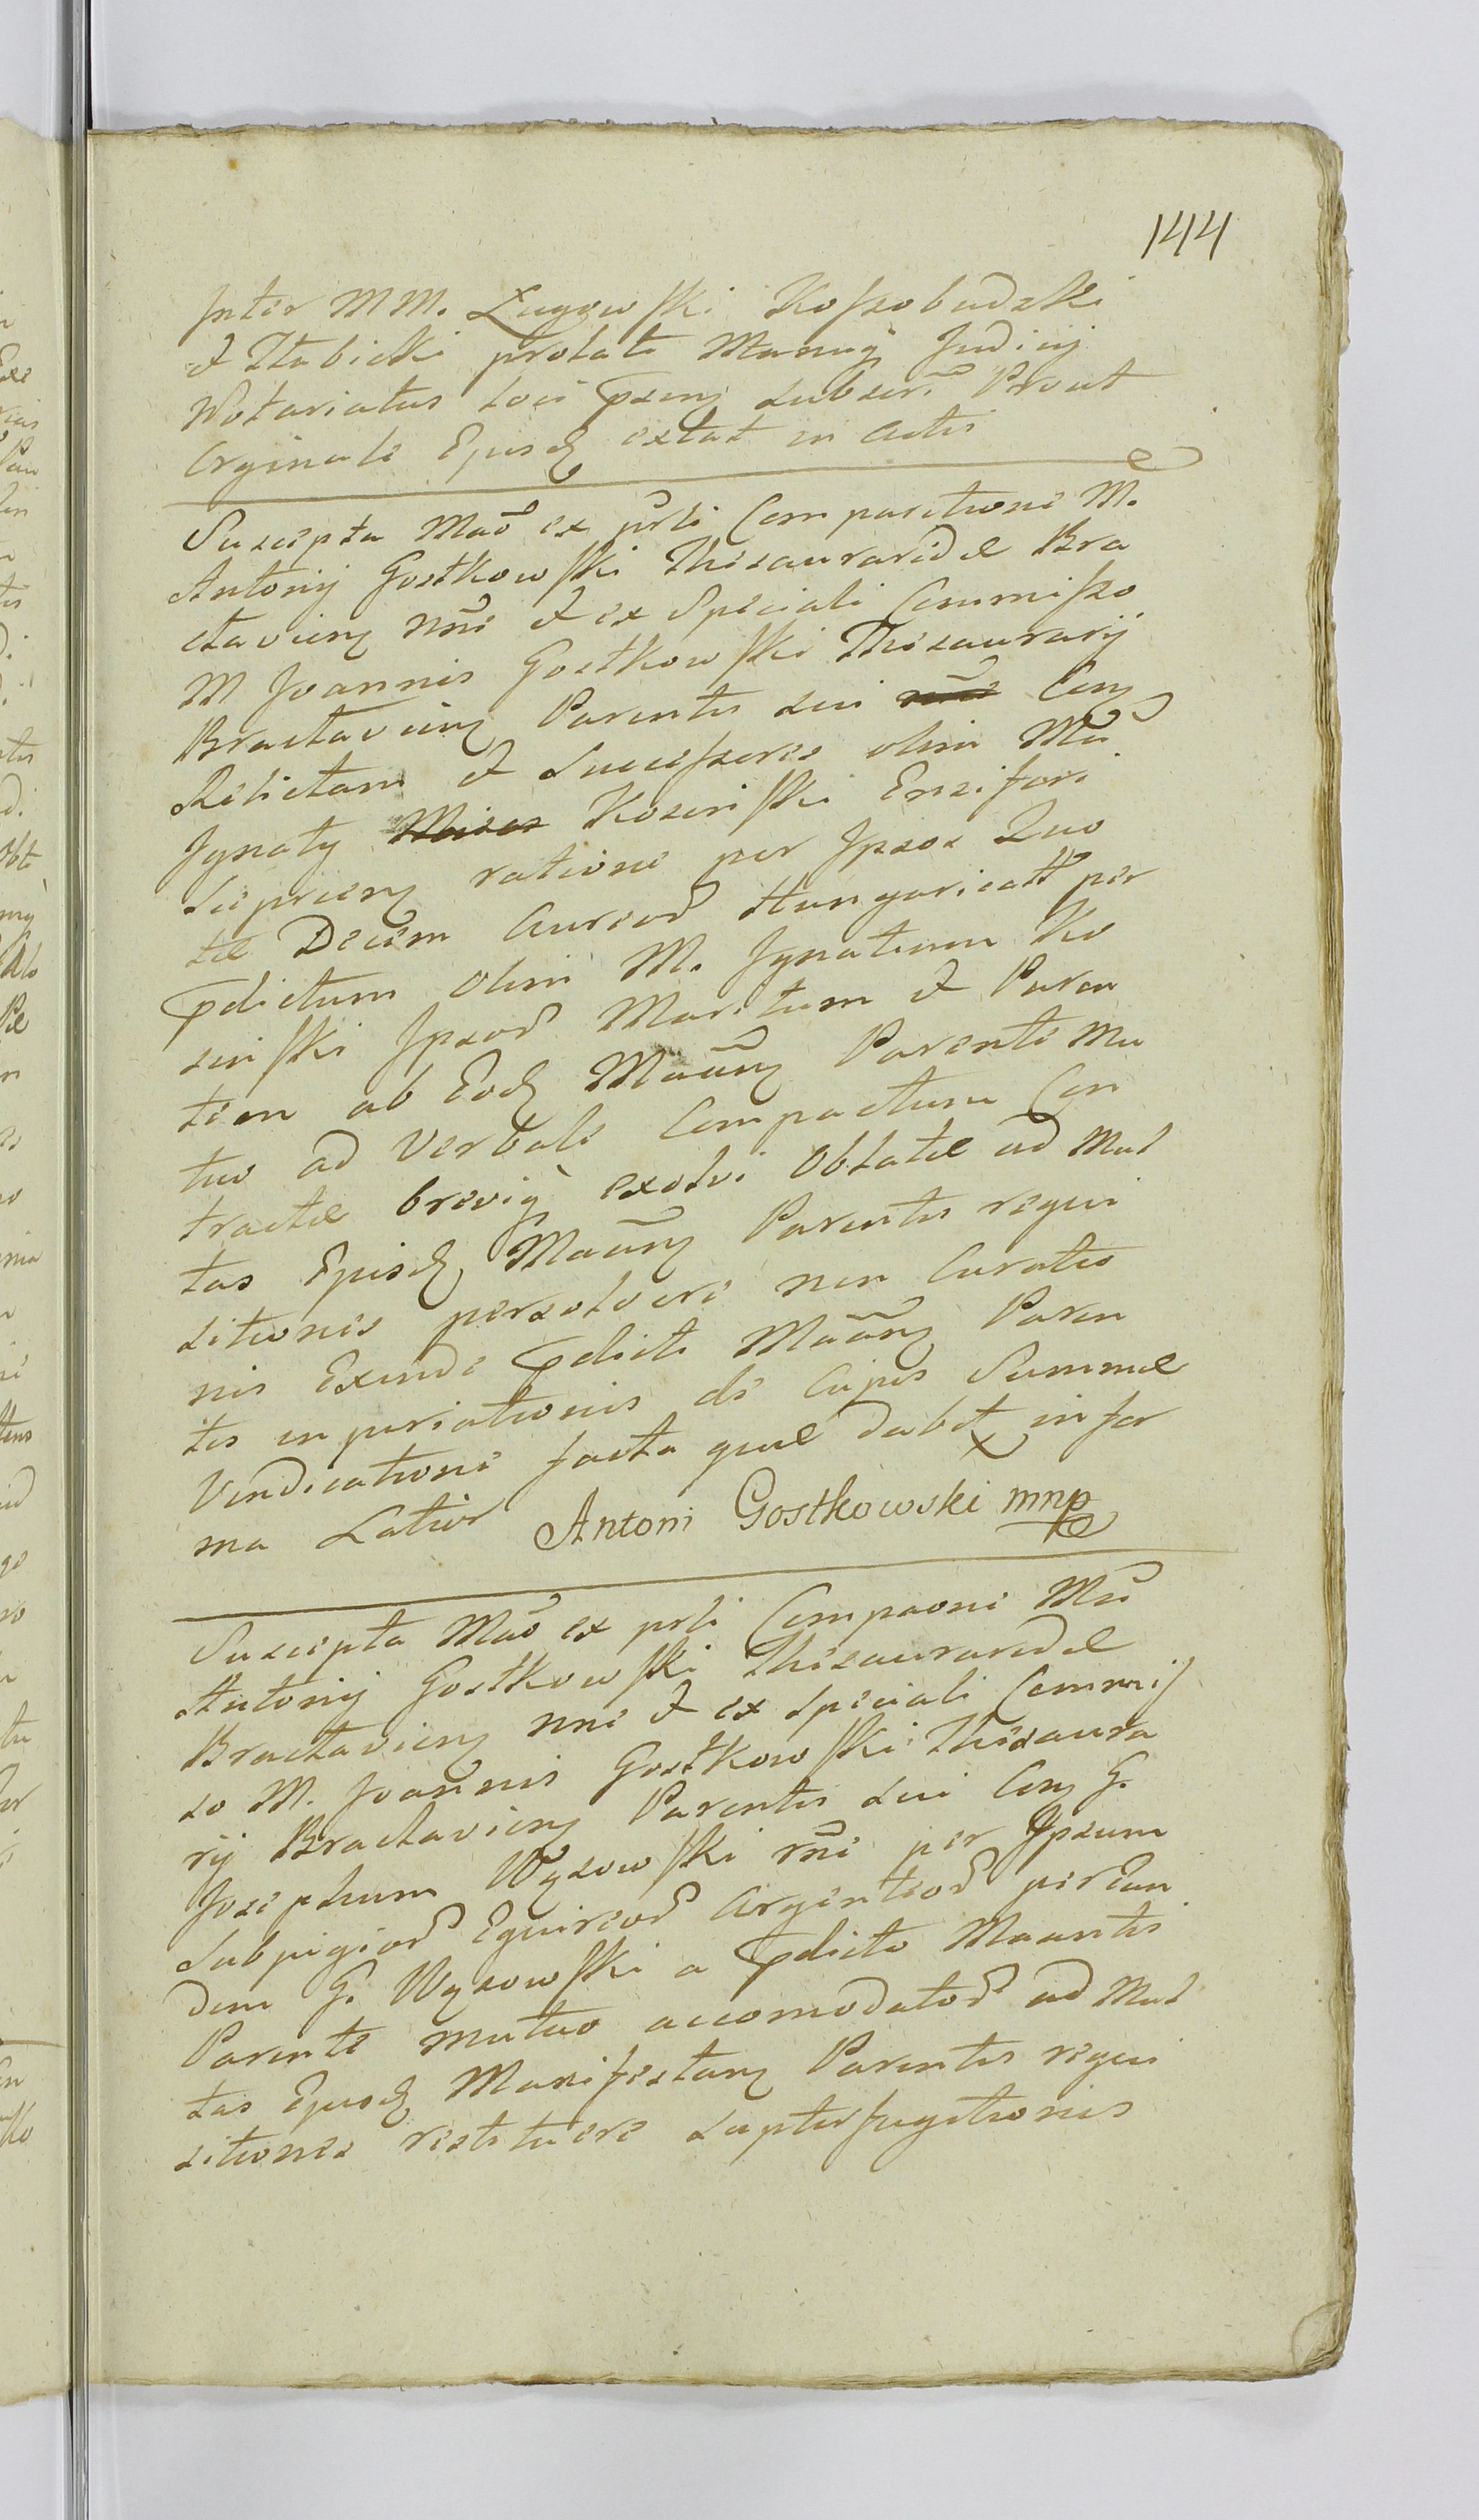 144
Inter MM. Ługowski Koszobudzki
et Stabicki prolati Manuq Judicij
Notariatus loci pseny subscri Prout
Orginale Ejusd extat in Actis
Suscepta Mão ex psli Comparitione M.
Antonij Gostkowski Thesauraridæ Bra
claviens nñe et ex Speciali Commisso
M Joannis Gostkowski Thesaurarij
Braclaviens Parentis sui Con
Relictam et Successores olim Mci
Ignaty Kosinski Ensiferi
ratione per Ipsos Quo
tæ Decem Aureor Hungaricall per
pdictum olim M. Ignatium Ko
sinski Ipsor Maritum et Paren
tem ab Eod Mãan Parente Mu
tuo ad Verbale Compactum Con
tractæ breviq exolvi Oblatæ ad Mul
tas Ejusd Mãan Parentis requi
sitiones persolvere non Curatio
nis Exinde pdicti Mãan Paren
tis inpuriationis de Cujus Summæ
Vindicatione facta quæ dabt in for
ma Latior Antoni Gostkowski mnp
Suscepta Mão ex psli Compaone Mci
Antonij Gostkowski Thesauraridæ
Braclaviens nne et ex speciali Commis
so M. Joannis Gostkowski Thesaura
rij Braclaviens Parentis sui Con G.
Josephum Wysowski rñe per Ipsum
Argenteor per Eun
dem G. Wysowski a pdicto Maantis
Parente mutuo accomodator ad Mul
tas Ejusd Manifestan Parentis requi
sitiones restituere supterfugitionis